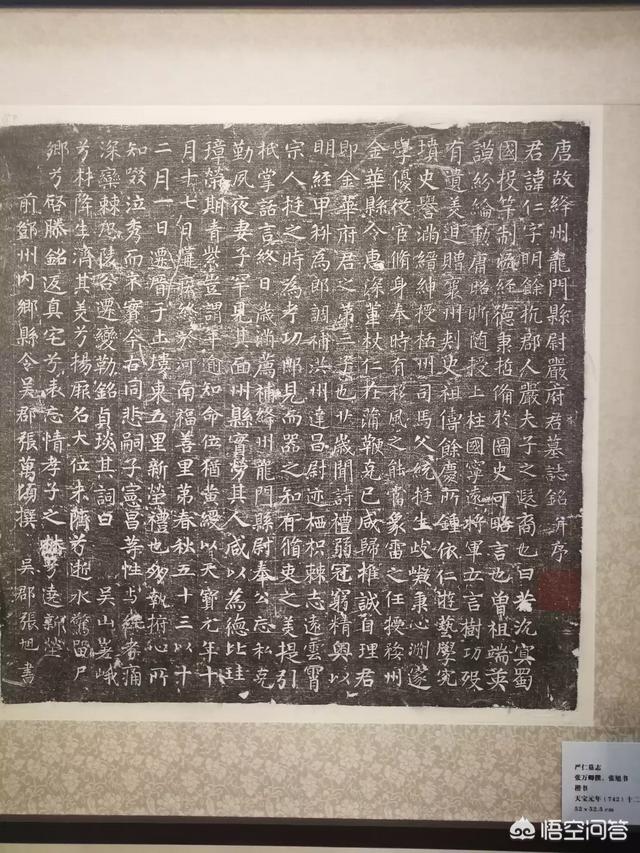 唐故絳州龍門縣尉嚴府君墓誌銘并序
君諱仁字明餘杭郡人嚴夫子之裔也曰若沉冥蜀
國投竿制 經德秉哲備於圖史可略言也曾祖端英
謨紛綸勳庸昭晰隨授上柱國寧遠將軍立言樹功歿
有遺美追贈襄州刺史祖 餘慶所鍾依仁遊藝學究
墳史譽滿縉紳授括州司馬父統挺生岐嶷秉心淵邃
學優從官脩身奉時有移風之能當象雷之任授婺州
金華縣令惠深 杖仁在蒲鞭克己咸歸推誠自理君
即金華府君之第三子也廿歲聞詩禮弱冠窮精奧以
明經甲科為郎調補洪州建昌尉迹栖枳棘志遠雲霄
宗人挺之時為考功郎見而器之知有脩史之美提引
抵掌話言終日歲滿薦補絳州龍門縣尉奉公忘私克
勤夙夜妻子罕見其面州縣實勞其人咸以為德比珪
璋榮期青紫豈謂年逾知命位猶黃綬以天寶元年十
月十七日寢疾終於河南福善里第春秋五十三以十
二月一日遷厝于土塿東五里新塋禮也 執 心所
知歿泣秀而不實今古同悲嗣子憲昌等性与經眷痛
深欒棘恐陵谷遷變勒銘貞琰其詞曰 吳山峩峨
兮 降生濟其美兮揚靡名大位未躋兮逝水驚留尸
鄉兮啓滕銘返真宅兮表忘情孝子之 兮達鄰塋
前鄧州內鄉縣令吳郡張萬 撰 吳郡張旭書
严仁墓志
张万卿撰,张旭书
楷书
天宝元年(742)十二
52 x 52.5 cm
悟空问答